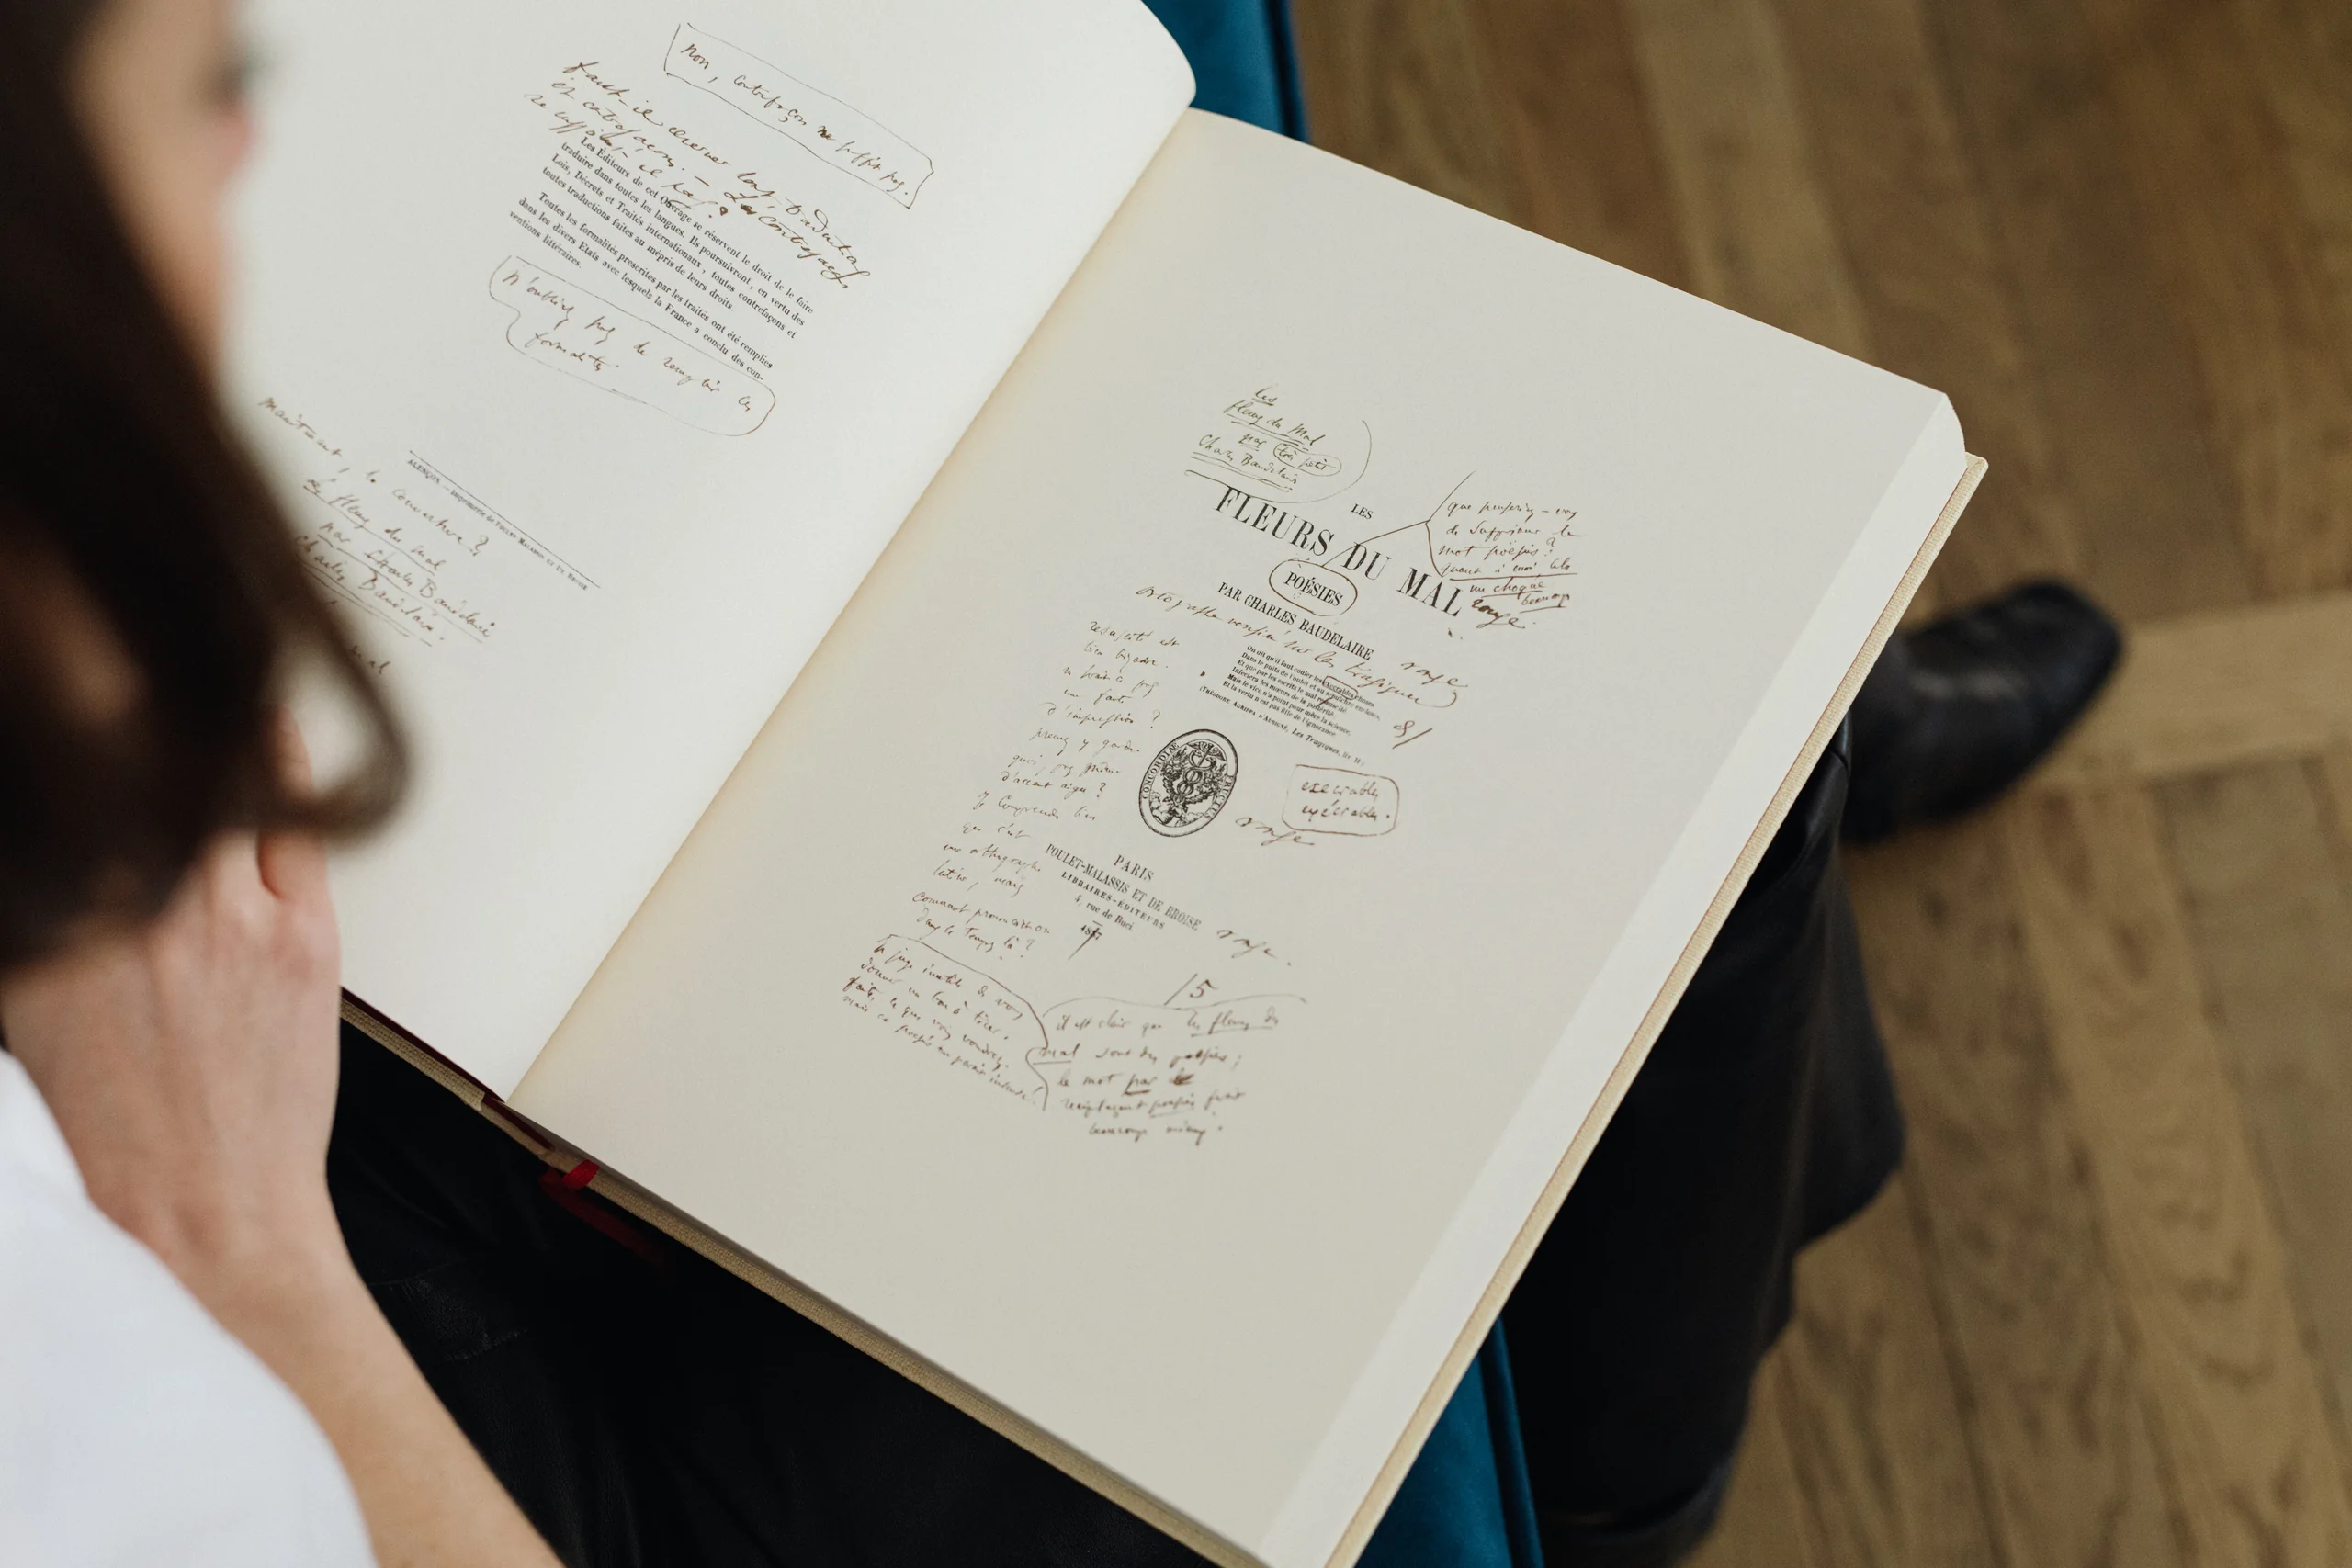 non, contrefaçon ne suffit pas.
faut-il
et contrefaçons. —
Les Éditeurs de cet Ouvrage se réservent le droit de le faire
traduire dans toutes les langues. Ils poursuivront, en vertu des
Lois, Décrets et Traités internationaux, toutes contrefaçons et
toutes traductions faites au mépris de leurs droits.
Toutes les formalités prescrites par les traités ont été remplies
dans les divers Etats avec lesquels la France a conclu des con-
ventions littéraires.
n'oubliez pas de remplir les
formalités
Maintenant, la couverture?
les fleurs du mal
par Charles Baudelaire
Charles Baudelaire.
mal
les
fleurs du Mal
par très petit
Charles Baudelaire
LES
FLEURS DU MAL
POÉSIES
PAR CHARLES BAUDELAIRE
que penseriez-vous
de supprimer le
mot poésies?
quant à moi, cela
me choque
beaucoup
rouge.
orthographe vérifiée sur les tragiques
rouge
On dit qu'il faut couler les execrables choses
Dans le puits de l'oubli et au sepulchre encloses,
Et que par les escrits le mal resuscité
Infectera les mœurs de la postérité;
Mais le vice n'a point pour mère la science,
Et la vertu n'est pas fille de l'ignorance.
(Théodore Agrippa d'Aubigné, Les Tragiques, liv. II.)
resuscité est
bien bizarre.
ne serait-ce pas
une faute
d'impression?
prenez y garde.
quoi, pas même
d'accent aigu?
Je comprends bien
que c'est
une orthographe
latine, mais
comment prononçait-on
dans le temps là?
execrables
exécrables.
rouge
CONCORDIAE
PARIS
POULET-MALASSIS ET DE BROISE
LIBRAIRES-ÉDITEURS
4, rue de Buci.
1857
rouge.
/5
Je juge inutile de vous
donner un bon à tirer.
faites ce que vous voudrez.
mais ce
il est clair que les fleurs du
mal sont des poésies;
le mot par
remplaçant poésies fait
beaucoup mieux.